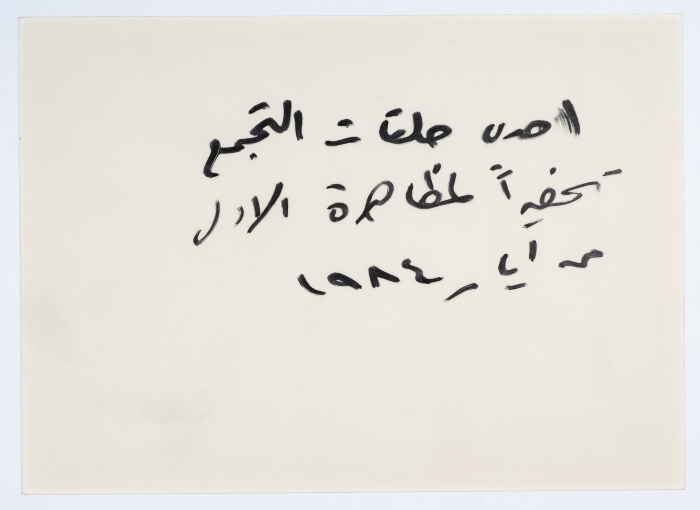 احدى حلقات التجمع
تحضيراً لمظاهرة الاول
من أيار ١٩٨٤